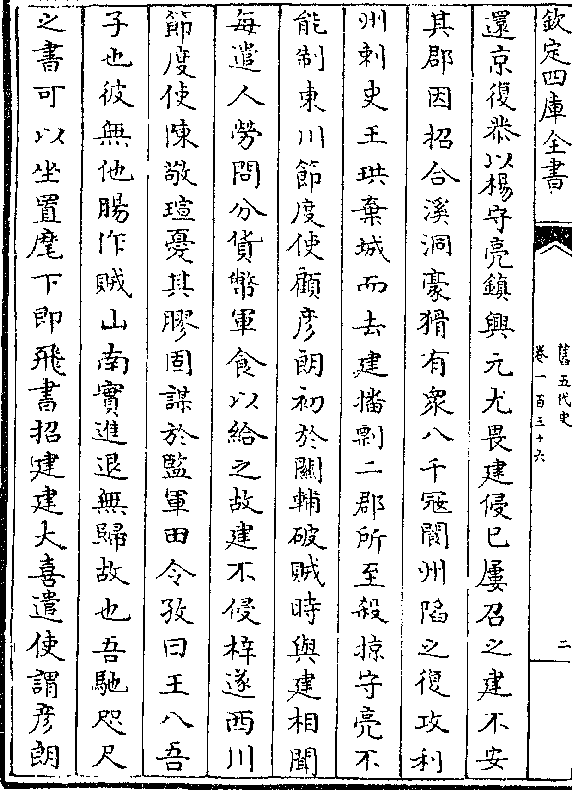 欽定四庫全書
舊五代史
卷一百三十六
二
還京復恭以楊守亮鎮興元尤畏建侵已屢召之建不安
其郡因招合溪洞豪猾有衆八千寇閬州陷之復攻利
州刺史王珙棄城而去建播剽二郡所至殺掠守亮不
能制東川節度使顧彦朗初於關輔破賊時與建相聞
每遣人勞問分貨幣軍食以給之故建不侵梓遂西川
節度使陳敬瑄憂其膠固謀於監軍田令孜曰王八吾
子也彼無他腸作賊山南實進退無歸故也吾馳咫尺
之書可以坐置麾下即飛書招建建大喜遣使謂彦朗